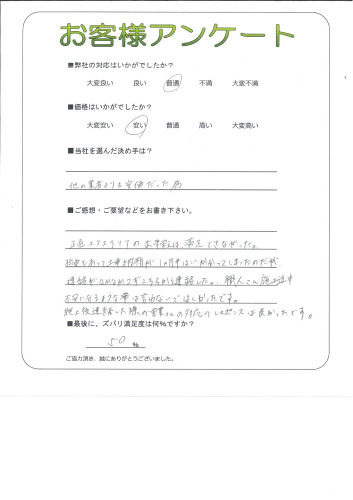 お客様アンケート
■弊社の対応はいかがでしたか？
大変良い 良い 普通 不満 大変不満
■価格はいかがでしたか？
大変安い 安い 普通 高い 大変高い
■当社を選んだ決め手は？
他の業者よりも安価だった為
■ご感想・ご要望などをお書き下さい。
正直エクステリアの 満足できなかった。
1ヶ月半はいかかってしまったのだが
連絡が こちらから連絡した。職人さん施工中
不安になるような事は言わないでほしかったです。
際の営業さんの対応・レスポンスは良かったです。
■最後に、ズバリ満足度は何％ですか？
50 %
ご協力頂き、誠にありがとうございました。